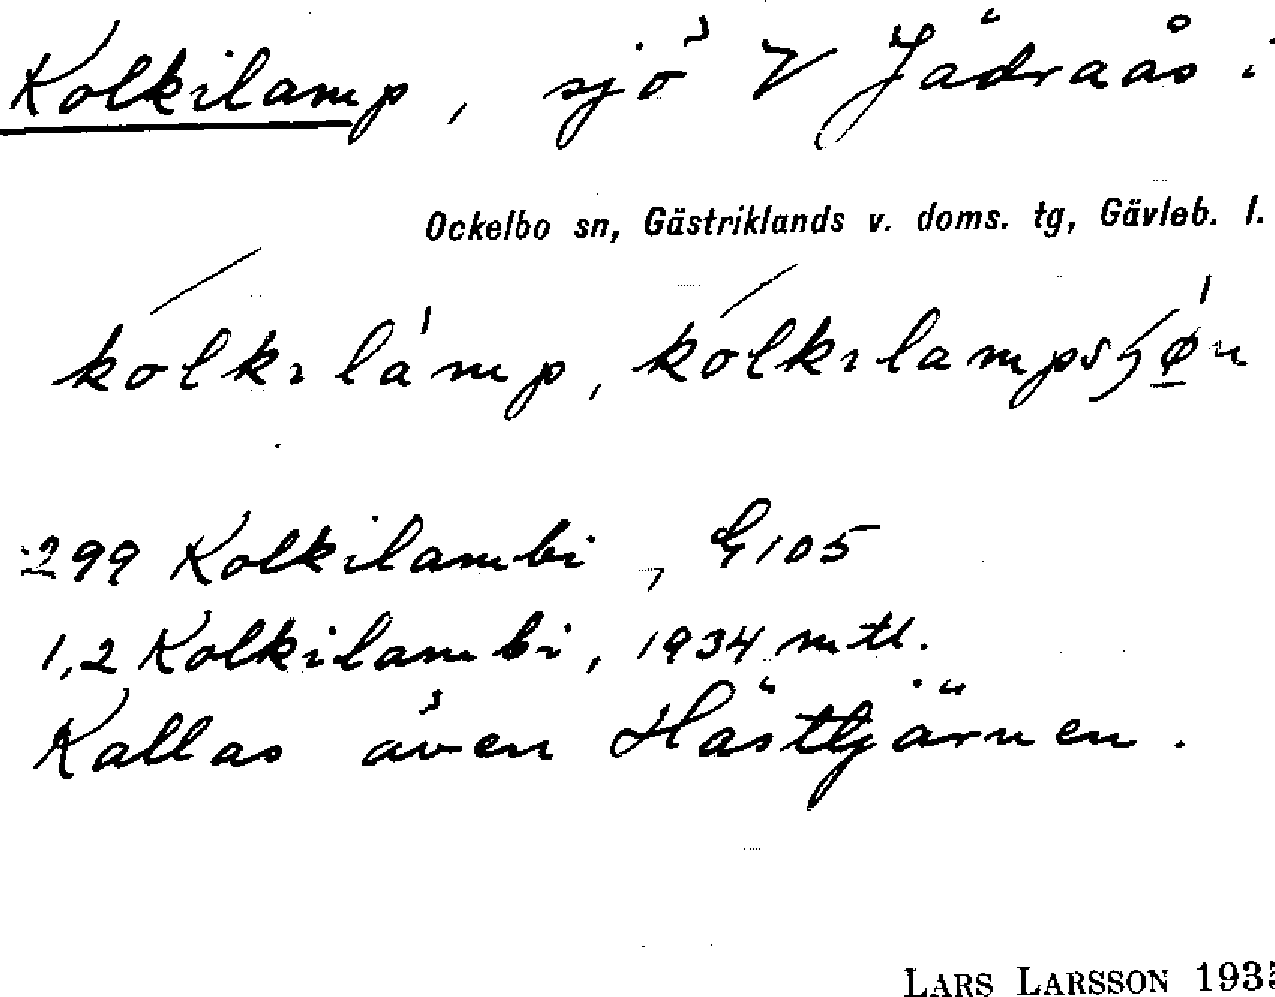 Kolkilamp, sjö V Jädraås i
Ockelbo sn, Gästriklands v. doms. tg, Gävleb. l.
kolkılamp, kolkılamps
299 Kolkilambi, G 105
1,2 Kolkilambi, 1934 mtl.
Kallas även Hästtjärnen.
LARS LARSSON 193